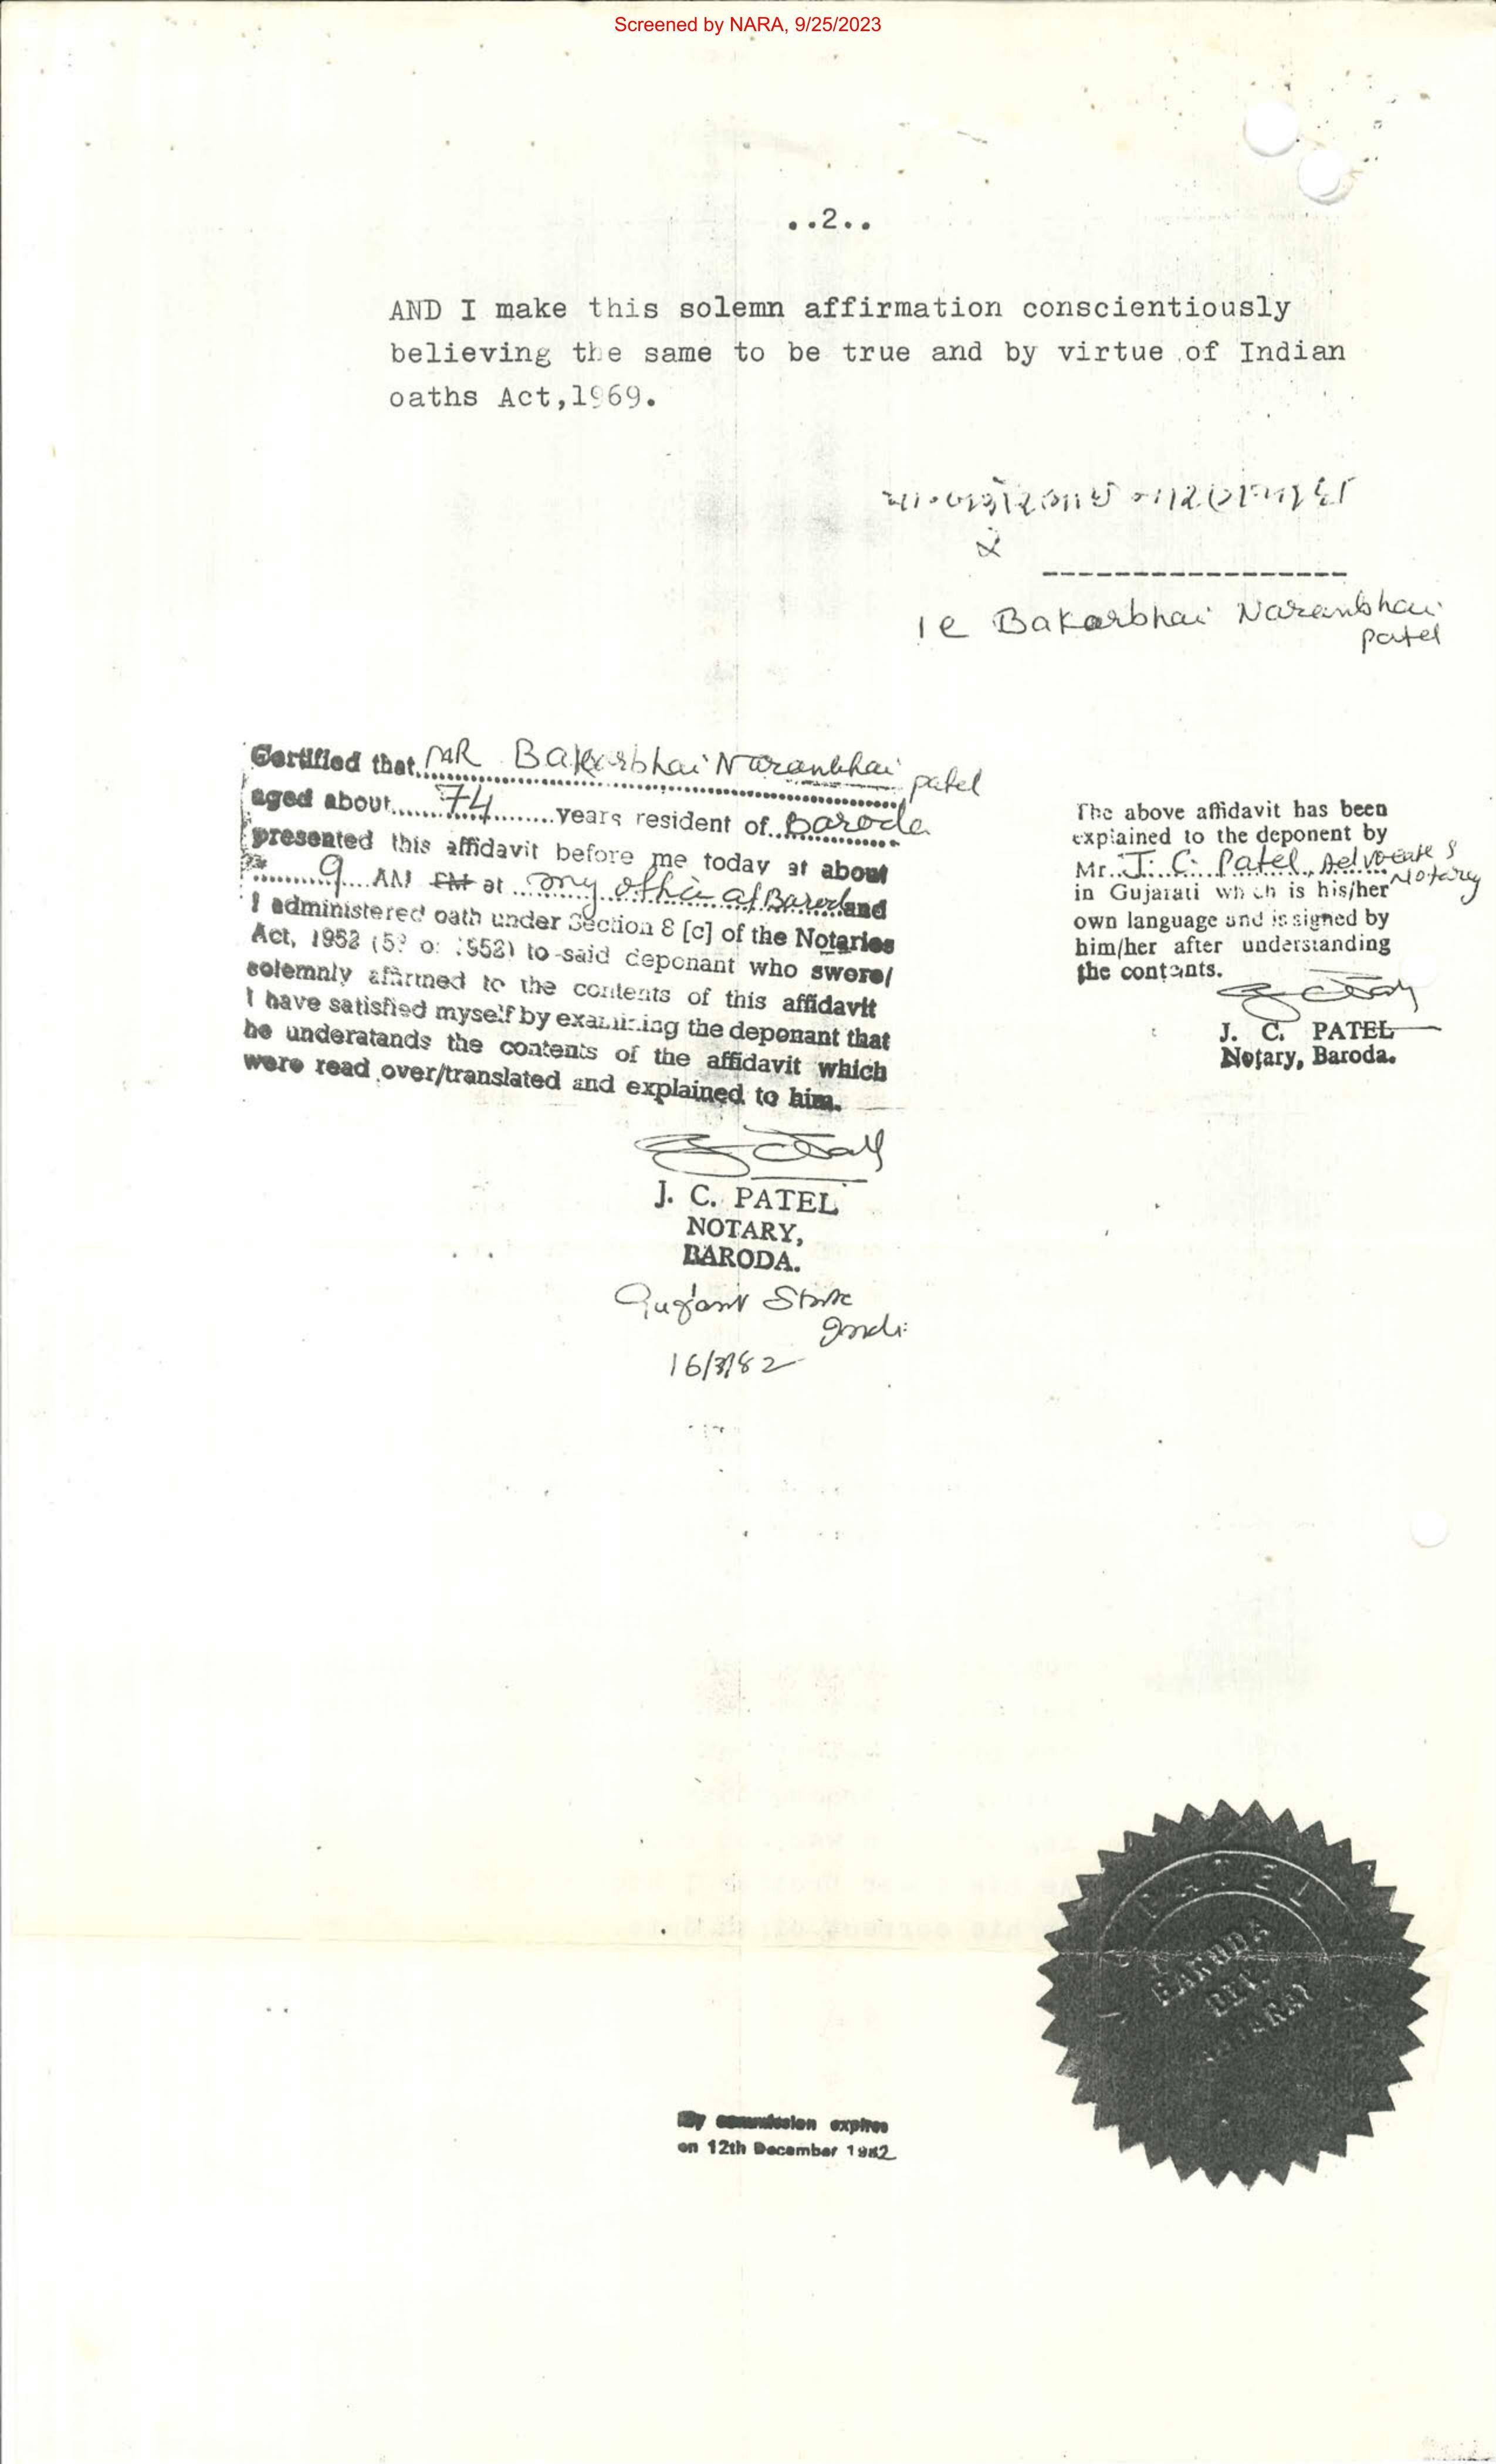 Screened by NARA, 9/25/2023
..2..
AND I make this solemn affirmation conscientiously
believing the same to be true and by virtue of Indian
oaths Act,1969.
ie Bakorbhai Naranbhai
patel
Certified that MR Bakorbhai Naranbhai patel
aged about 74 years resident of Baroda
presented this affidavit before me today at about
9 AM PM at my office at Baroda and
I administered oath under Section 8 [c] of the Notaries
Act, 1952 (53 of 1952) to said deponant who swore/
solemnly affirmed to the contents of this affidavit
I have satisfied myself by examining the deponant that
he underatands the contents of the affidavit which
were read over/translated and explained to him.
J. C. PATEL
NOTARY,
BARODA.
Gujarat State
India
16/3/82
The above affidavit has been
explained to the deponent by
Mr. J. C. Patel, Advocate &
Notary
in Gujarati which is his/her
own language and is signed by
him/her after understanding
the contents.
J. C. PATEL
Notary, Baroda.
PATEL
BARODA
My commission expires
on 12th December 1982